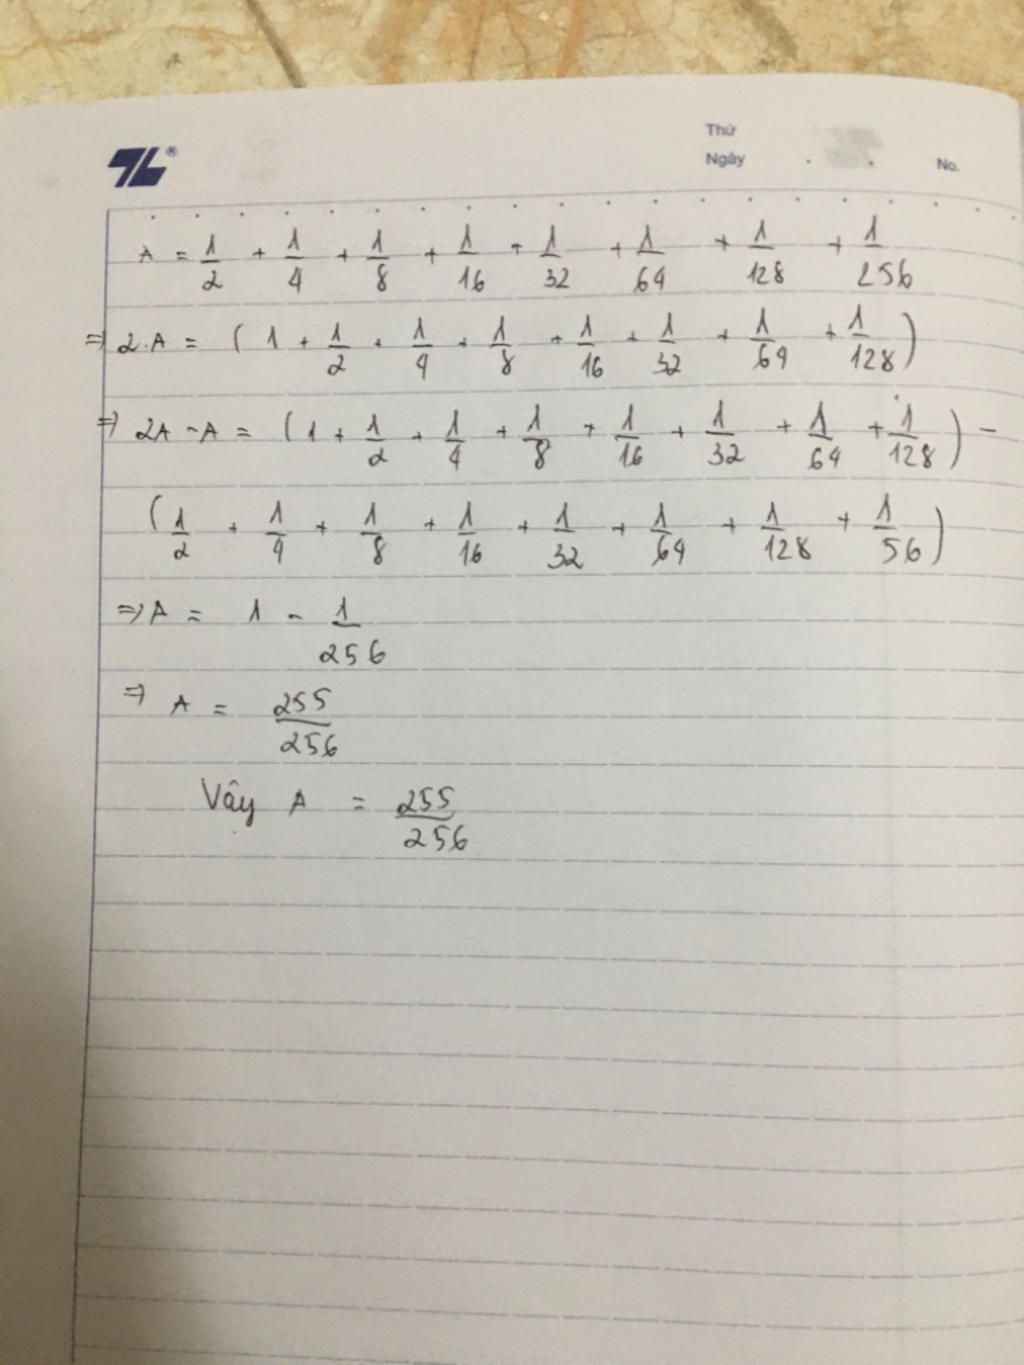 Thứ
Ngày . . No.
A = 1/2 + 1/4 + 1/8 + 1/16 + 1/32 + 1/64 + 1/128 + 1/256
⇒ 2.A = ( 1 + 1/2 + 1/4 + 1/8 + 1/16 + 1/32 + 1/64 + 1/128 )
⇒ 2A - A = ( 1 + 1/2 + 1/4 + 1/8 + 1/16 + 1/32 + 1/64 + 1/128 ) -
( 1/2 + 1/4 + 1/8 + 1/16 + 1/32 + 1/64 + 1/128 + 1/56 )
⇒ A = 1 - 1/256
⇒ A = 255/256
Vây A = 255/256